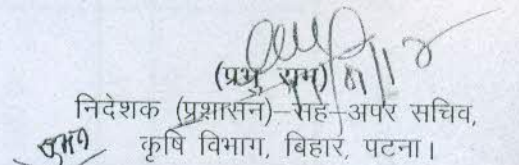 (प्रभु राम)
निदेशक (प्रशासन)–सह–अपर सचिव,
कृषि विभाग, बिहार, पटना।